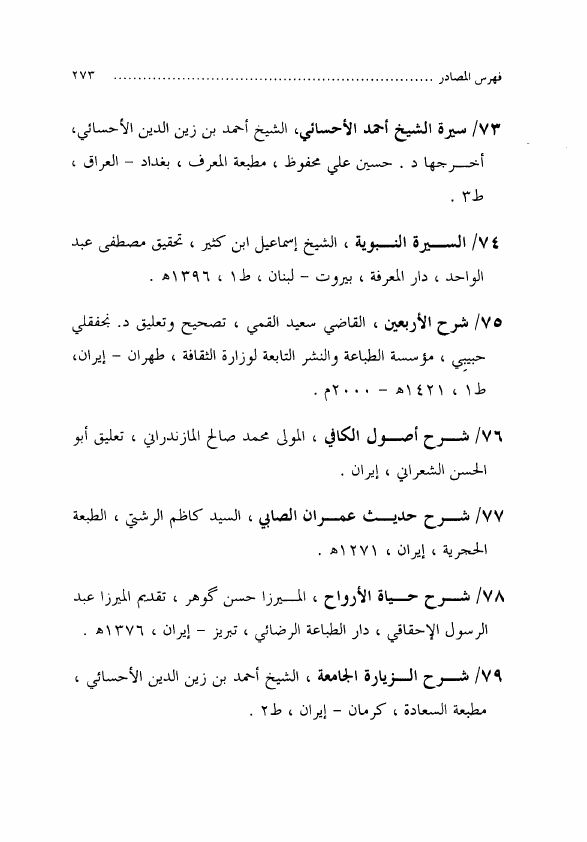 فهرس المصادر ................................................................ ٢٧٣
٧٣/ سيرة الشيخ أحمد الأحسائي، الشيخ أحمد بن زين الدين الأحسائي،
أخـــرجها د . حسين علي محفوظ ، مطبعة المعرف ، بغداد – العراق ،
ط٣ .
٧٤/ الســـيرة النـــبوية ، الشيخ إسماعيل ابن كثير ، تحقيق مصطفى عبد
الواحد ، دار المعرفة ، بيروت – لبنان ، ط١ ، ١٣٩٦ه .
٧٥/ شرح الأربعين ، القاضي سعيد القمي ، تصحيح وتعليق د. نجفقلي
حبيبي ، مؤسسة الطباعة والنشر التابعة لوزارة الثقافة ، طهران – إيران،
ط١ ، ١٤٢١ه – ٢٠٠٠م .
٧٦/ شـــرح أصـــول الكافي ، المولى محمد صالح المازندراني ، تعليق أبو
الحسن الشعراني ، إيران .
٧٧/ شـــرح حديـــث عمـــران الصابي ، السيد كاظم الرشتي ، الطبعة
الحجرية ، إيران ، ١٢٧١ه .
٧٨/ شـــرح حـــياة الأرواح ، المـــيرزا حسن گوهر ، تقديم الميرزا عبد
الرسول الإحقاقي ، دار الطباعة الرضائي ، تبريز – إيران ، ١٣٧٦ه .
٧٩/ شـــرح الـــزيارة الجامعة ، الشيخ أحمد بن زين الدين الأحسائي ،
مطبعة السعادة ، كرمان – إيران ، ط٢ .